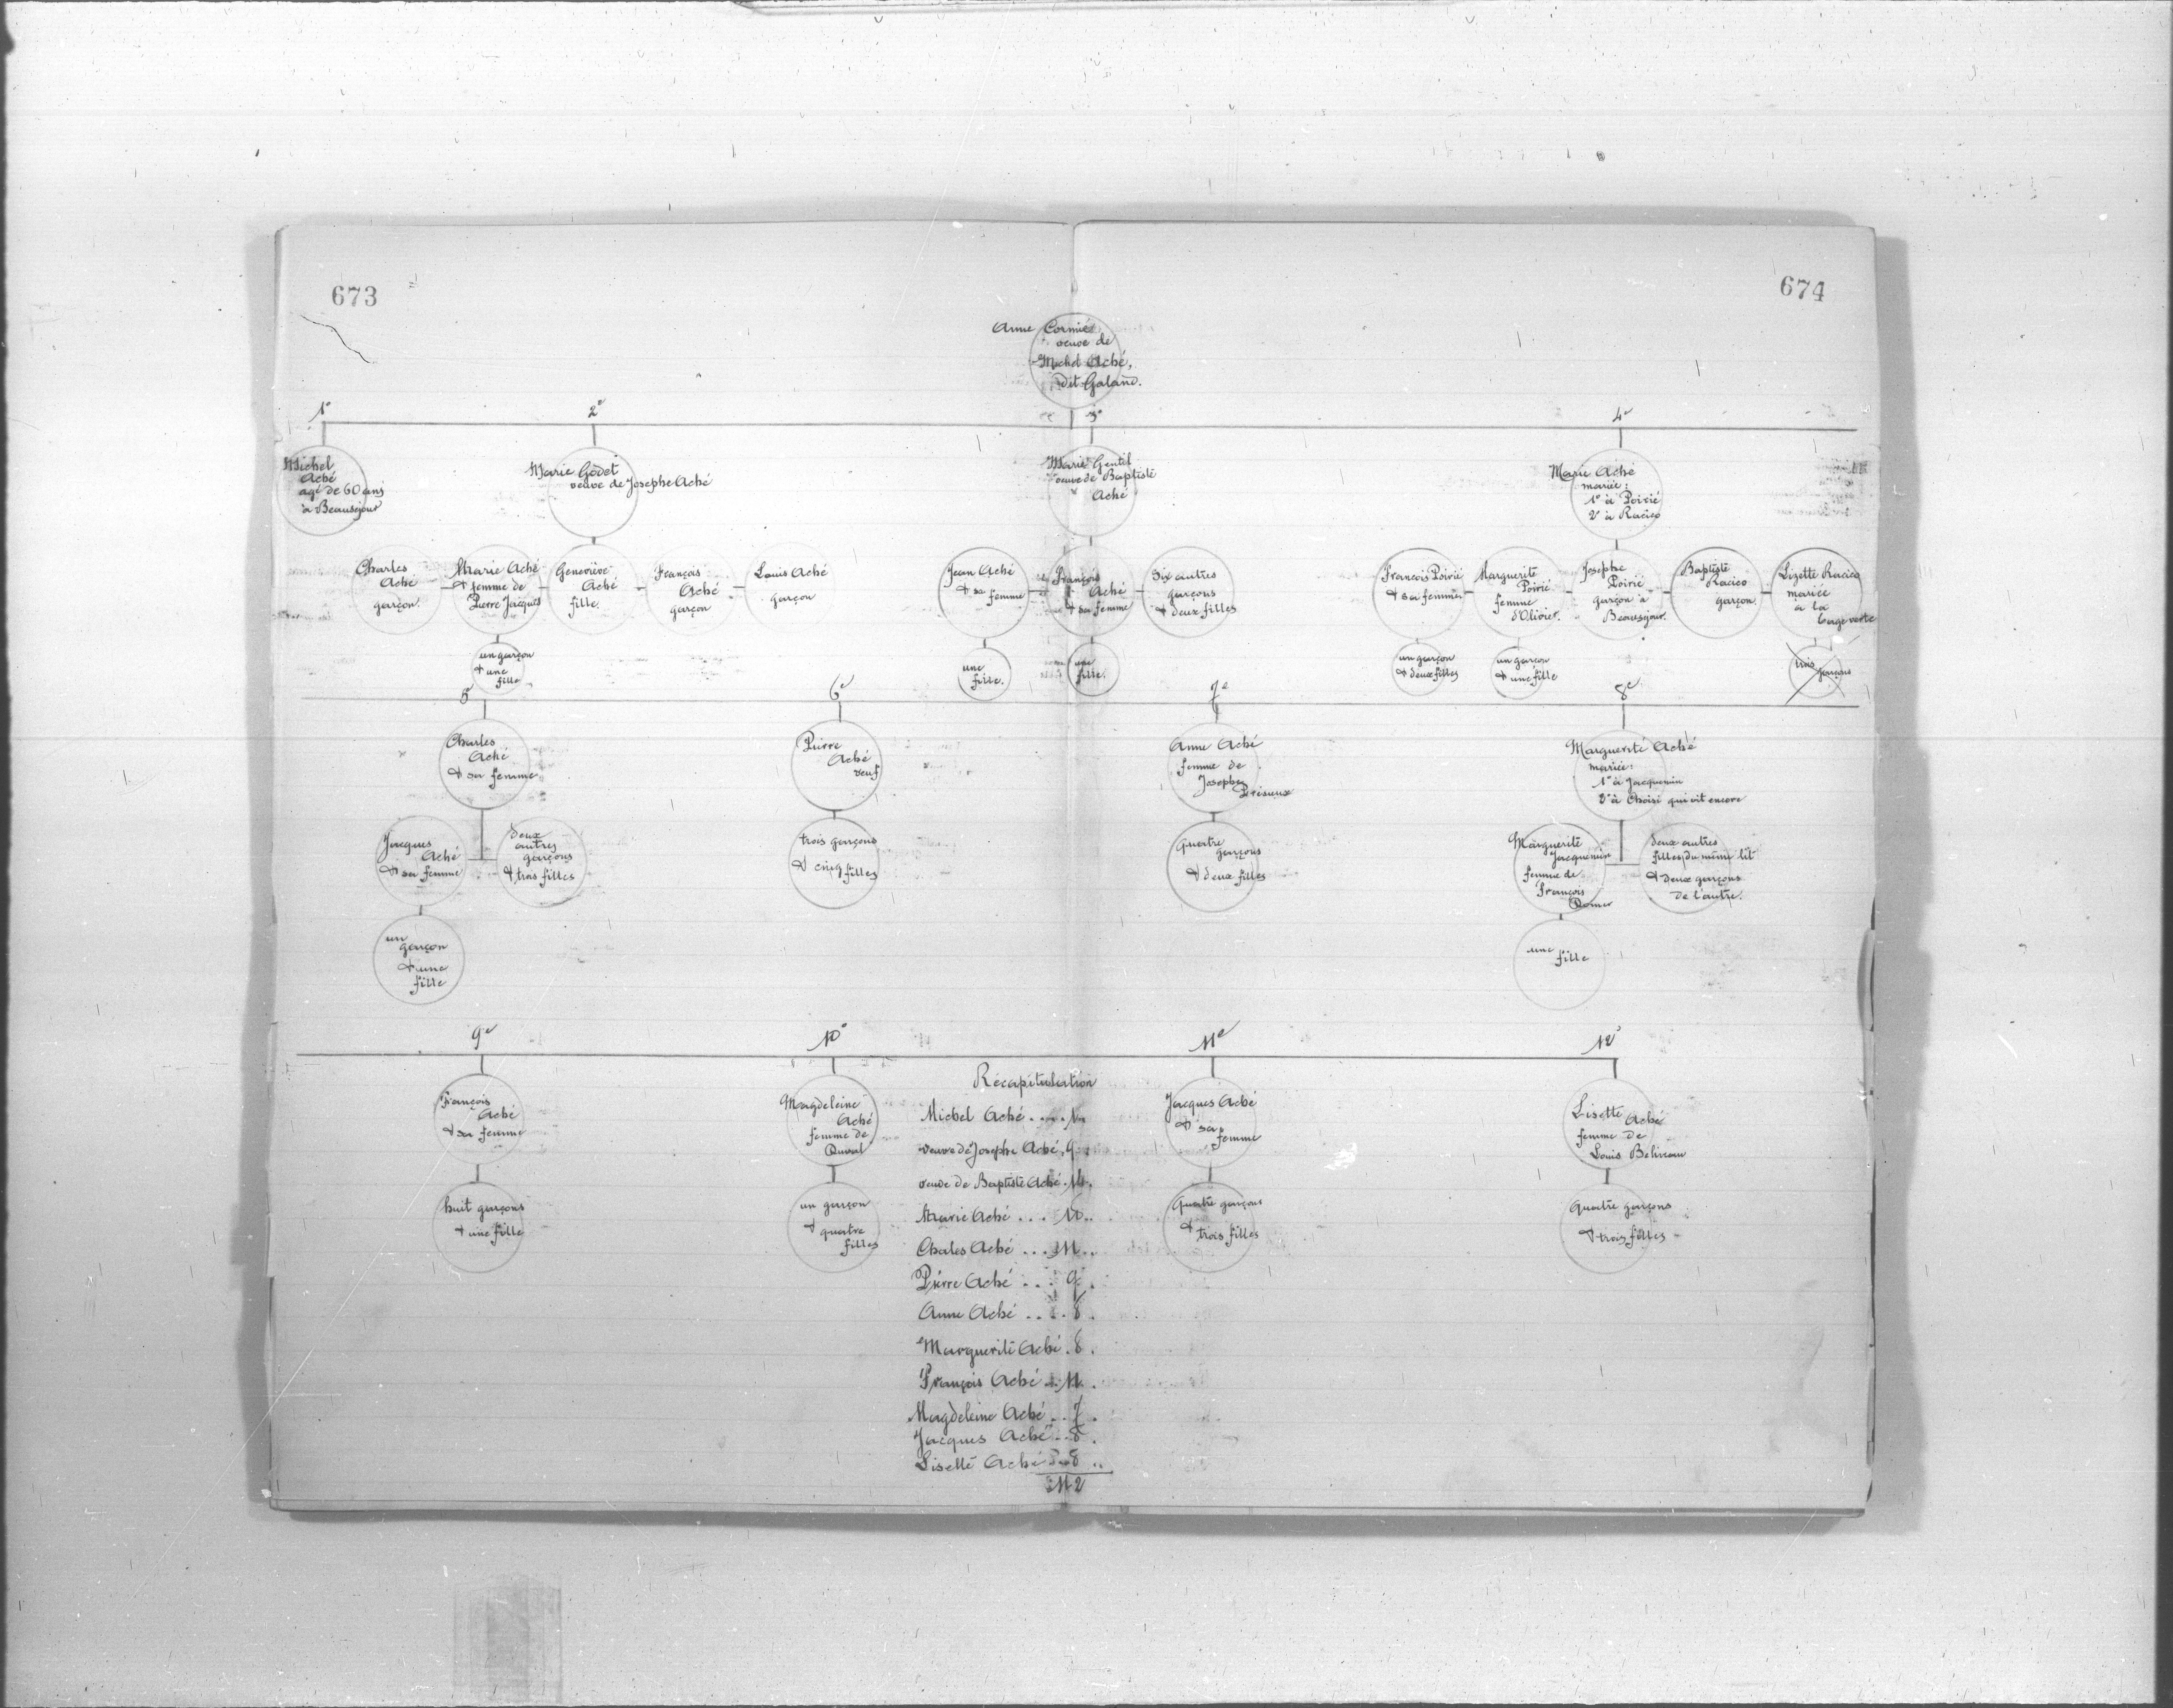 673
674
Anne Cormié
veuve de
Michel Aché,
dit Galand.
1°
2e
3e
4e
Michel
Aché
agé de 60 ans
à Beauséjour
Marie Godet
veuve de Josephe Aché
Marie Gentil
veuve de Baptiste
Aché
Marie Aché
mariée:
1° à Poirié
2° à Racico
Charles
Aché
garçon
Marie Aché
& femme de
Pierre Jacques
Geneviève
Aché
fille
François
Aché
garçon
Louis Aché
garçon
Jean Aché
& sa
femme
François
Aché
& sa femme
Six autres
garçons
& deux filles
François Poirié
& sa femme
Marguerite
Poirié
femme
d'Olivier.
Josephe
Poirié
garçon à
Beauséjour.
Baptiste
Racico
garçon.
Lizette Racico
mariée
à la
baye verte
un garçon
& une
fille
une
fille.
une
fille.
un garçon
& deux filles
un garçon
& une fille
trois garçons
5e
6e
7e
8e
Charles
Aché
& sa femme
Pierre
Aché
veuf
Anne Aché
femme de
Josephe
Marguerite Aché
mariée:
1° à Jacquemin
2° à Choisi qui vit encore
Jacques
Aché
& sa femme
deux
autres
garçons
& trois filles
trois garçons
& cinq filles
Quatre
garçons
& deux filles
Marguerite
Jacquemin
femme de
François
deux autres
filles du même lit
& deux garçons
de l'autre.
un
garçon
& une
fille
une
fille
9e
10e
11e
12e
François
Aché
& sa femme
Magdeleine
Aché
femme de
Duval
Jacques Aché
& sa
femme
Lisette
Aché
femme de
Louis Beliveau
huit garçons
& une fille
un garçon
& quatre
filles
Quatre garçons
& trois filles
Quatre garçons
& trois filles
Récapitulation
Michel Aché .... 1.
veuve de Josephe Aché . 9.
veuve de Baptiste Aché . 14.
Marie Aché ... 10..
Charles Aché ... 11..
Pierre Aché ... 9.
Anne Aché .... 8.
Marguerite Aché . 8.
François Aché .. 11.
Magdeleine Aché .. 7.
Jacques Aché .. 8.
Lisette Aché .. 8..
112